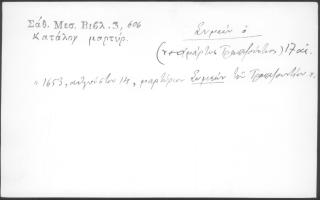 Σάθ. Μεσ. Βιβλ. 3, 606
Κατάλογ μαρτύρ.
Συμεών ὁ
(νεομάρτυς Τραπεζούντιος) 17 αἰ.
"1653, αὐγούστου 14, μαρτύριον Συμεών τοῦ Τραπεζουντίου".